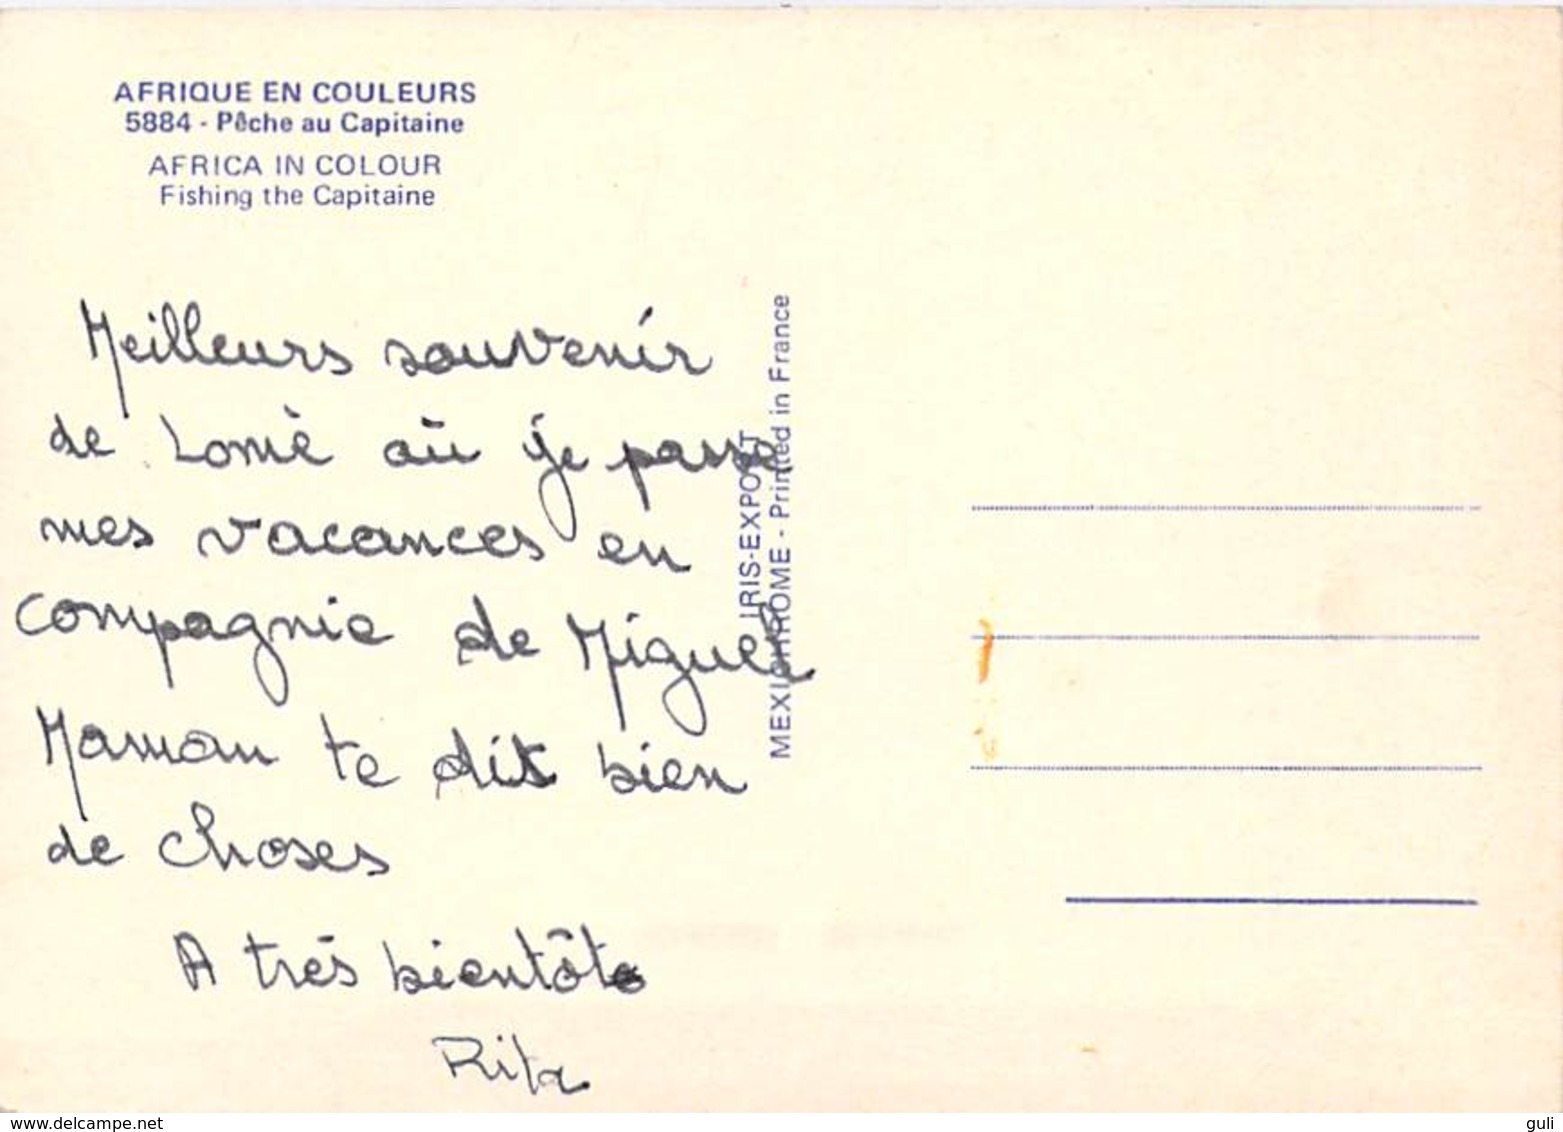 AFRIQUE EN COULEURS
5884 - Pêche au Capitaine
AFRICA IN COLOUR
Fishing the Capitaine
Meilleurs souvenir
de Lomè où je passe
mes vacances en
compagnie de Miguel
Maman te dit bien
de choses
A très bientôt
Rita
IRIS-EXPORT
MEXICHROME - Printed in France
www.delcampe.net
guli